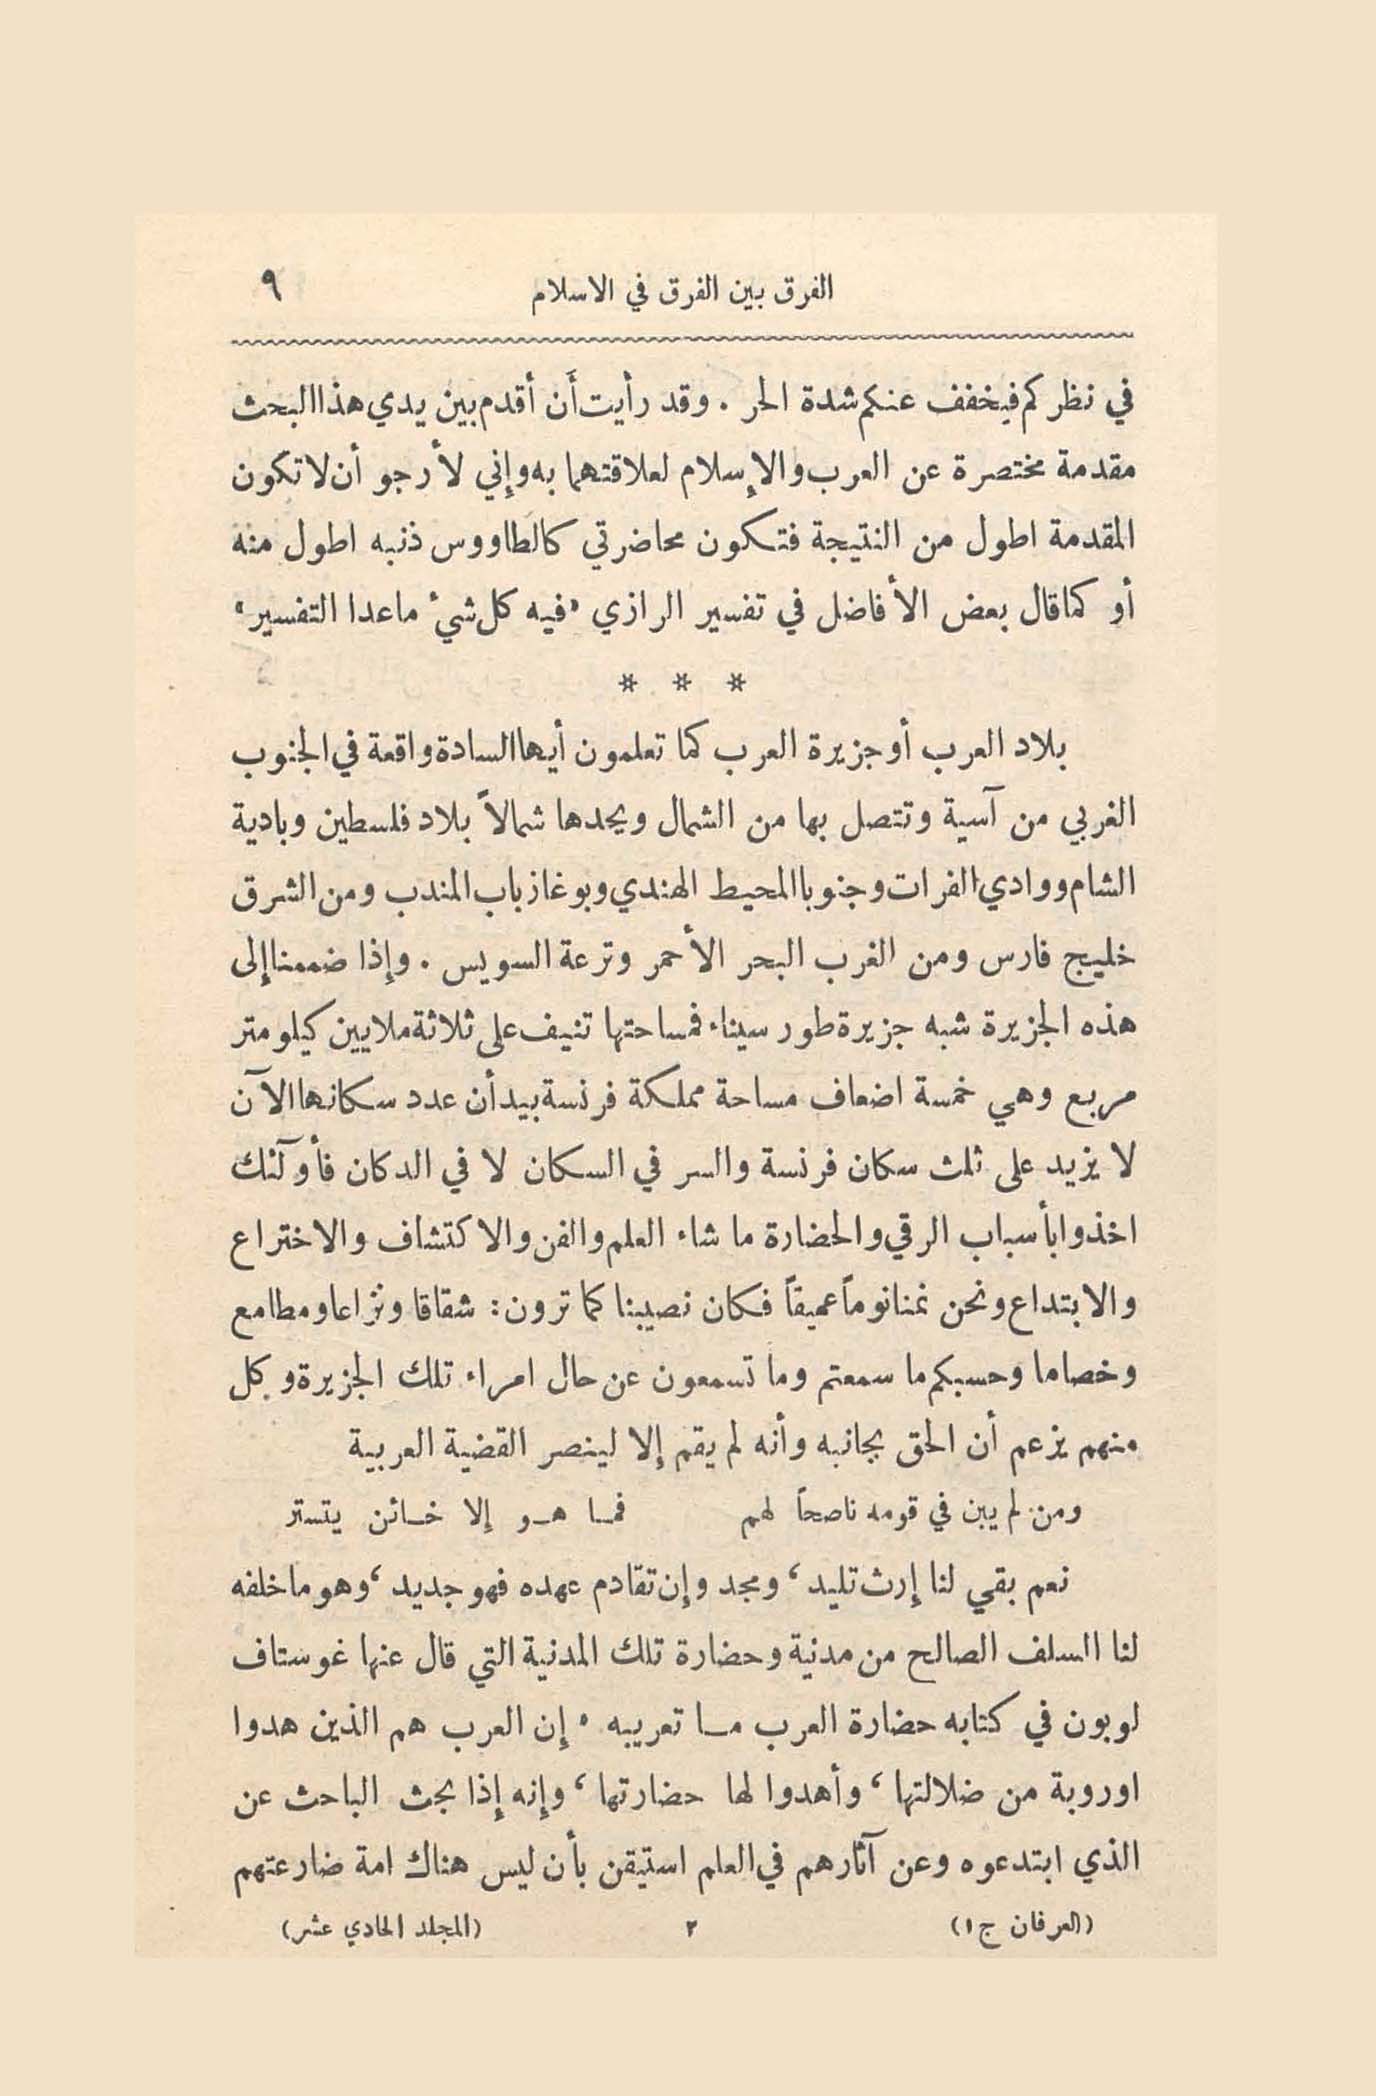 الفرق بين الفرق في الاسلام ٩
في نظركم فيخفف عنكم شدة الحر . وقد رأيت أَن أقدم بين يدي هذا البحث
مقدمة مختصرة عن العرب والإسلام لعلاقتهما به وإني لأرجو أن لا تكون
المقدمة اطول من النتيجة فتكون محاضرتي كالطاووس ذنبه اطول منه
أو كما قال بعض الأفاضل في تفسير الرازي «فيه كل شيء ما عدا التفسير»
* * *
بلاد العرب أو جزيرة العرب كما تعلمون أيها السادة واقعة في الجنوب
الغربي من آسية وتتصل بها من الشمال ويحدها شمالاً بلاد فلسطين وبادية
الشام ووادي الفرات وجنوبا المحيط الهندي وبوغاز باب المندب ومن الشرق
خليج فارس ومن الغرب البحر الأحمر وترعة السويس . وإذا ضممنا إلى
هذه الجزيرة شبه جزيرة طور سيناء فمساحتها تنيف على ثلاثة ملايين كيلو متر
مربع وهي خمسة اضعاف مساحة مملكة فرنسة بيد أن عدد سكانها الآن
لا يزيد على ثلث سكان فرنسة والسر في السكان لا في الدكان فأولئك
اخذوا بأسباب الرقي والحضارة ما شاء العلم والفن والاكتشاف والاختراع
والابتداع ونحن نمنا نوماً عميقاً فكان نصيبنا كما ترون : شقاقا ونزاعا ومطامع
وخصاما وحسبكم ما سمعتم وما تسمعون عن حال امراء تلك الجزيرة وكل
منهم يزعم أن الحق بجانبه وأنه لم يقم إلا لينصر القضية العربية
ومن لم يبن في قومه ناصحاً لهم فمـا هـو إلا خـائن يتستر
نعم بقي لنا إرث تليد ، ومجد وإن تقادم عهده فهو جديد ، وهو ما خلفه
لنا السلف الصالح من مدنية وحضارة تلك المدنية التي قال عنها غوستاف
لوبون في كتابه حضارة العرب مـا تعريبه « إن العرب هم الذين هدوا
اوروبة من ضلالتها ، وأهدوا لها حضارتها ، وإنه إذا بحث الباحث عن
الذي ابتدعوه وعن آثارهم في العلم استيقن بأن ليس هناك امة ضارعتهم
(العرفان ج ١) ٢ (المجلد الحادي عشر)